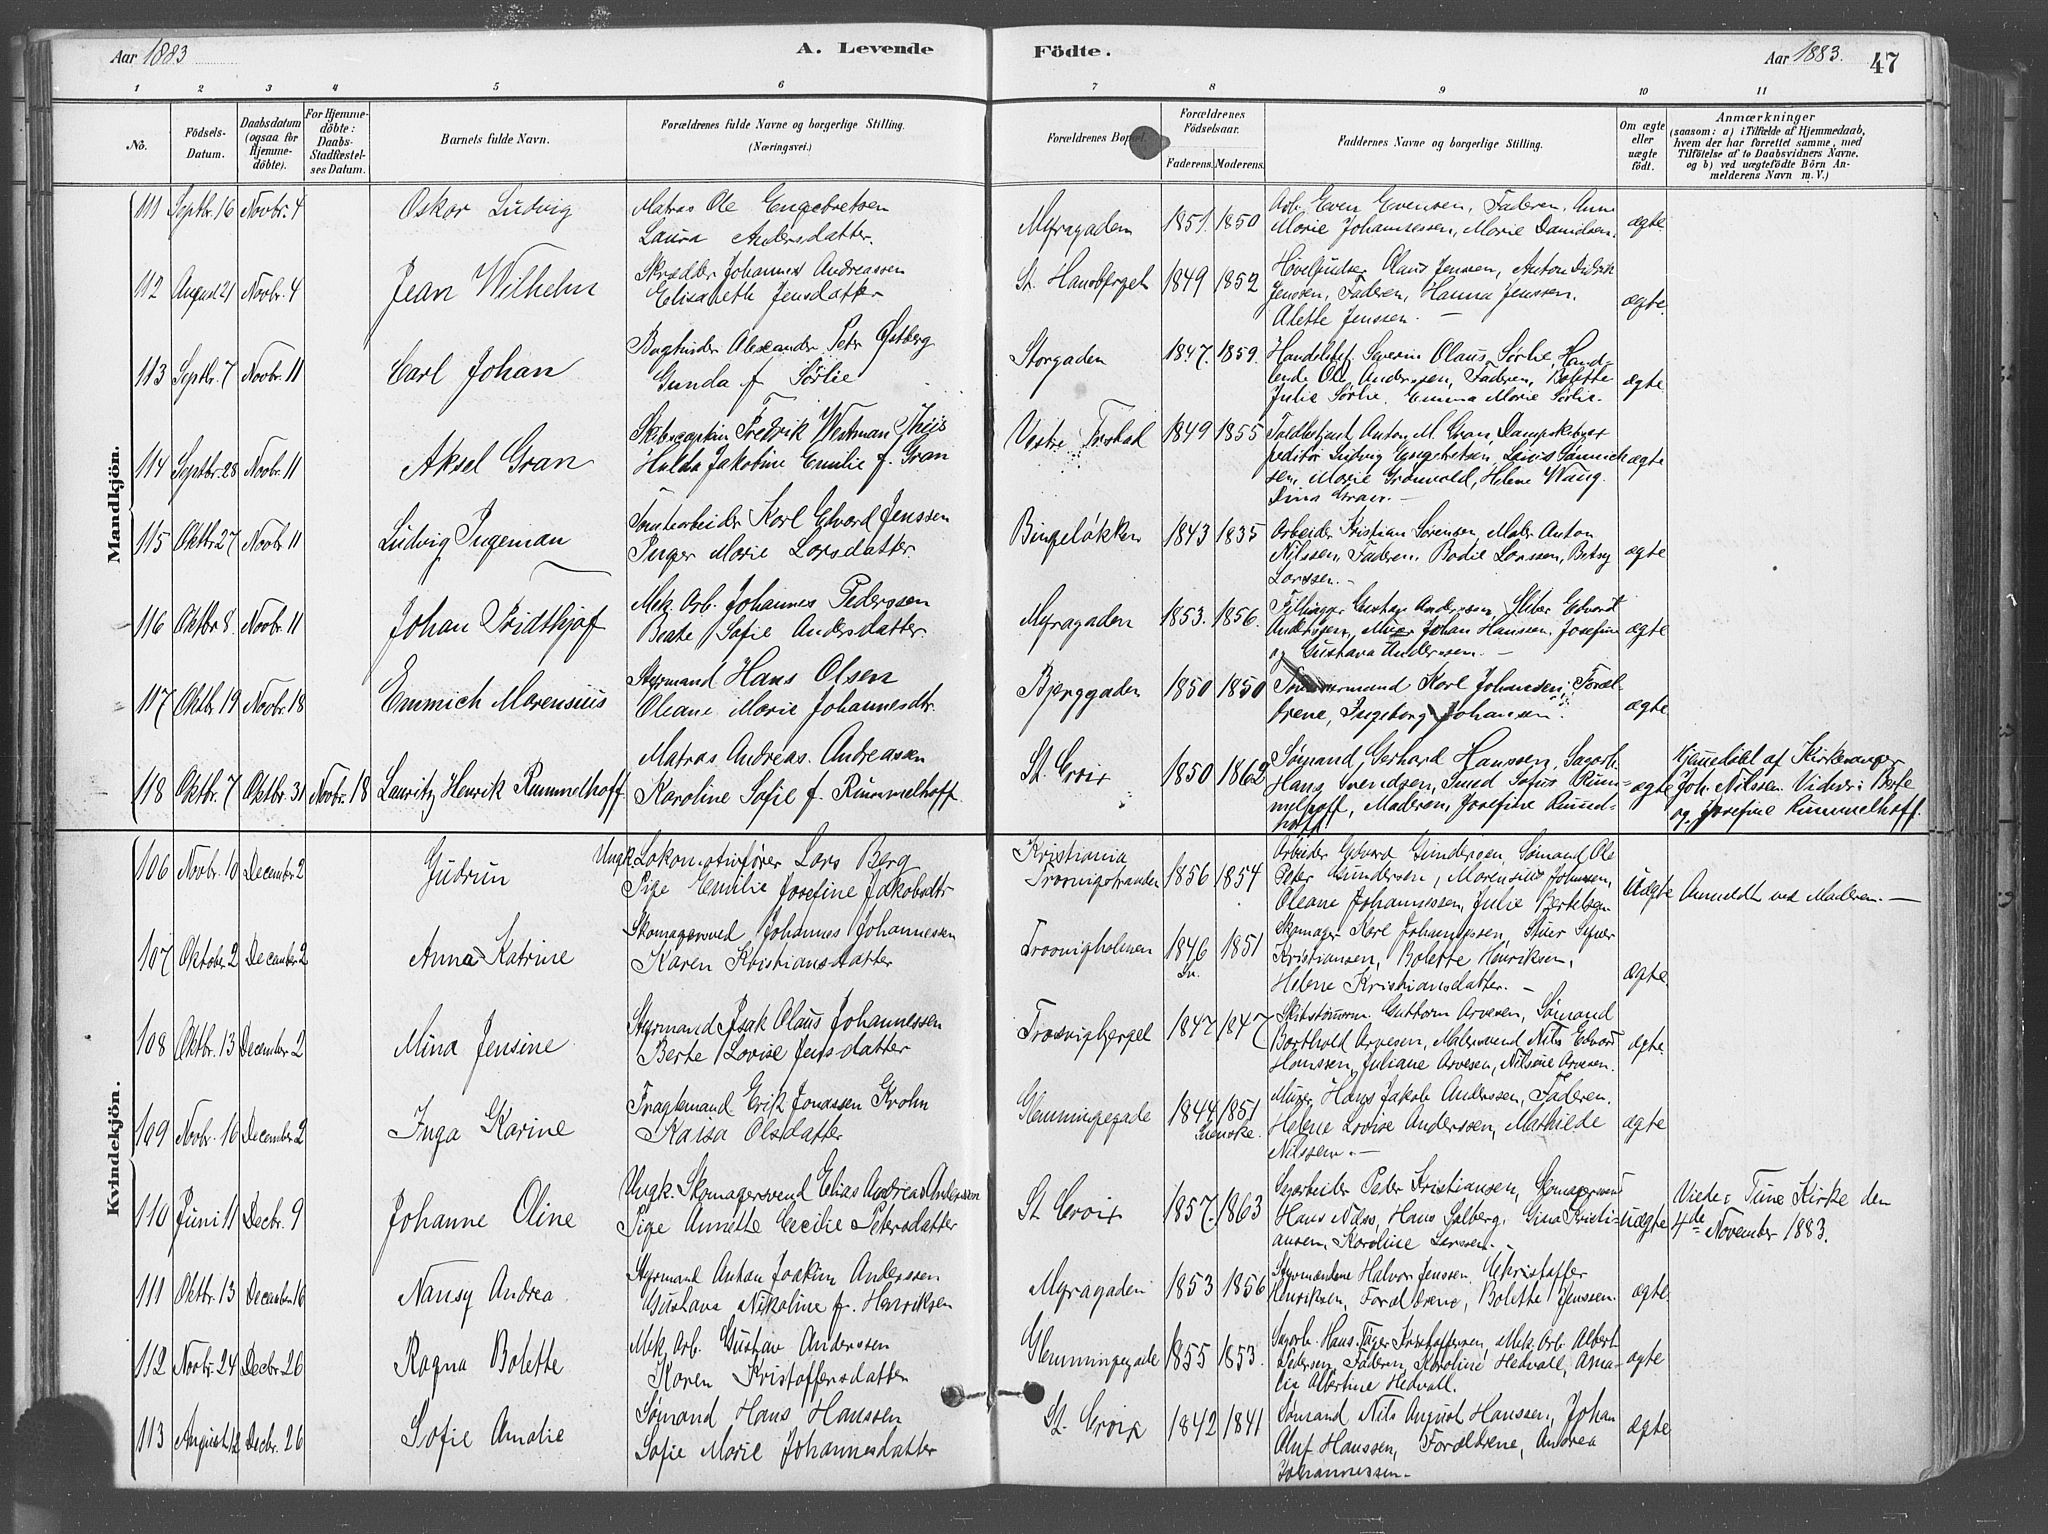 Aar 1883
A. Levende
Födte.
Aar 1883.
47
1 2 3 4 5 6 7 8 9 10 11
No.
Födsels-
Datum.
Daabsdatum
(ogsaa for
Hjemme-
döbte).
For Hjemme-
döbte:
Daabs-
Stadfæstel-
ses Datum.
Barnets fulde Navn.
Forældrenes fulde Navne og borgerlige Stilling.
(Næringsvei.)
Forældrenes
Forældrenes
Födselsaar.
Faderens. Moderens.
Faddernes Navne og borgerlige Stilling.
Om ægte
eller
uægte
födt.
Anmærkninger
(saasom: a) i Tilfælde af Hjemmedaab,
hvem der har forrettet samme, med
Tilföielse af to Daabsvidners Navne,
og b) ved uægtefödte Börn An-
melderens Navn m. V.)
Mandkjön.
111 Septbr. 16 Novbr. 4 Oskar Ludvig
Matros Ole Engebretsen
Laura Andersdatter.
Myragaden 1851. 1850
Arb. Even Evensen, Faderen, Anne
Marie Johannessen, Marie Davidsen.
ægte.
112 August 21 Novbr. 4 Jean Wilhelm
Skrædder Johannes Andreassen
Elisabeth Jensdatter
St. Hansberget 1849 1852
Olaus Jenssen, Anton Didrik
Jenssen, Faderen, Hanna Jenssen.
Alette Jenssen. —
ægte.
113 Septbr. 7 Novbr. 11 Carl Johan
Bogbinder Alexander Petr Østberg
Gunda f. Sørlie
Storgaden 1847. 1859.
Handelsbet. Severin Olaus Sørlie, Hand-
lende Ole Anderssen, Faderen, Bolette
Julie Sørlie, Emma Marie Sørlie.
ægte
114 Septbr. 28 Novbr. 11 Aksel Gran
Skibscaptein Fredrik Westman Thiis
Hulda Jakobine Emilie f. Gran
Vestre Frstad 1849 1855
Toldbetjent Anton M. Gran, Dampskibsex
peditør Ludvig Engebretsen, Lavis Sannich
sen, Marie Grønvold, Helene Wang.
Dina Gran. —
ægte
115 Oktbr. 27 Novbr. 11 Ludvig Ingeman
Tomtearbeider Karl Edvard Jenssen
Inger Marie Larsdatter
Bingeløkken 1843 1835
Arbeider Kristian Sørensen, Maler Anton
Nilssen, Faderen, Bodil Larssen, Betsy
Larssen. -
ægte
116 Oktbr 8. Novbr. 11 Johan Fridthjof
Mek. Arb. Johannes Pederssen
Beate Sofie Andersdatter
Myragaden 1853. 1856.
Filhugger Gustav Anderssen, Sliber Edvard
Anderssen, Murer Johan Hanssen, Josefine
og Gustava Anderssen. —
ægte
117 Oktbr. 19 Novbr. 18 Emmich Marensius
Styrmand Hans Olsen
Oleane Marie Johannesdtr.
Bjerggaden 1850 1850
Tømmermand Karl Johansen, Foræl-
drene, Ingeborg Johansen.
ægte
118 Oktbr. 7 Oktbr. 31 Novbr. 18 Lauritz Henrik Rummelhoff.
Matros Andreas Andreassen
Karoline Sofie f. Rummelhoff
St. Croix 1850 1862
Sømand Gerhard Hanssen, Sagarb.
Hans Svendsen, Smed Sofus Rum-
melhoff, Moderen, Josefine Rummel-
hoff
ægte
Hjemmedøbt af Kirkesanger
Joh. Nilssen. Vidner: Berte
og Josefine Rummelhoff.
Kvindekjön.
106 Novbr. 10 December 2 Gudrun
Ungk. Lokomotivfører Lars Berg
Pige Emilie Josefine Jakobsdtr
Kristiania
Trosvigstranden 1856 1854
Arbeider Edvard Gundersen, Sømand Ole
Peter Gundersen, Marensius Johansen,
Oleane Johannessen, Julie Bertelsen
Uægte
Anmeldt ved Moderen. —
107 Oktober 2 December 2 Anna Katrine
Skomagersvend Johannes Johannessen
Karen Kristiansdatter
Trosvigholmen 1846 Sv. 1851
Skomager Karl Johannessen, Stuer Syver
Kristiansen, Bolette Henriksen,
Helene Kristiansdatter. —
ægte.
108 Oktbr. 13 December 2 Mina Jensine
Styrmand Isak Olaus Johannessen
Berte Lovise Jensdatter
Trosvigberget 1847 1847
Skibstømm. Guttorm Arvesen, Sømand
Barthold Arvesen, Malersvend Nils Edvard
Hanssen, Juliane Arvesen, Nilsine Arvesen.
ægte.
109 Novbr. 16 December 2 Inga Karine
Fragtemand Erik Jonassen Krohn
Kaisa Olsdatter
Glemmingegade 1844. 1851 Svenske.
Murer Hans Jakob Anderssen, Faderen.
Helene Lovise Anderssen, Mathilde
Nilssen. —
ægte
110 Juni 11 Decbr. 9 Johanne Oline
Ungk. Skomagersvend Elias Andreas Anderssen
Pige Annette Cecilie Petersdatter
St. Croix 1857. 1863
Sagarbeider Peder Kristiansen, Skomagersvend
Hans Næss, Hans Solberg, Gina Kristi-
ansen, Karoline Larssen.
uægte
Viede i Tune Kirke den
4de November 1883.
111 Oktbr. 13 December 16 Nansy Andrea
Styrmand Anton Joakim Anderssen
Gustava Nikoline f. Henriksen
Myragaden 1853 1856
Styrmændene Halvor Jenssen, Christoffer
Henriksen, Forældrene, Bolette Jenssen.
ægte.
112 Novbr. 24 Decbr. 26 Ragna Bolette
Mek. Arb. Gustav Anderssen
Karen Kristoffersdatter
Glemmingegade 1855 1853.
Sagarb. Hans Tager Kristoffersen, Mek. Arb. Albert
Pedersen, Faderen, Karoline Hedvall, Ama-
lie Albertine Hedvall.
ægte
113 August 12 Decbr. 26 Sofie Amalie
Sømand Hans Hanssen
Sofie Marie Johannesdatter
St. Croix 1842 1841
Sømand Nils August Hanssen, Johan
Oluf Hanssen, Forældrene, Andrea
Johannessen.
ægte